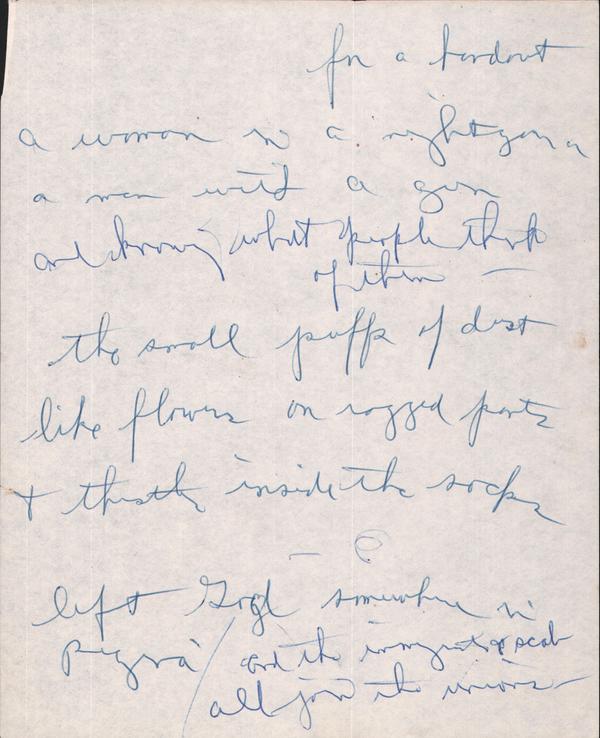 for a handout
a woman in a nightgown
a man with a gun
and knowing what people think
of them —
the small puffs of dust
like flowers on ragged pants
& thistles inside the socks
—
left God somewhere in
Regina / and the immigrants & scab
all join the unions —